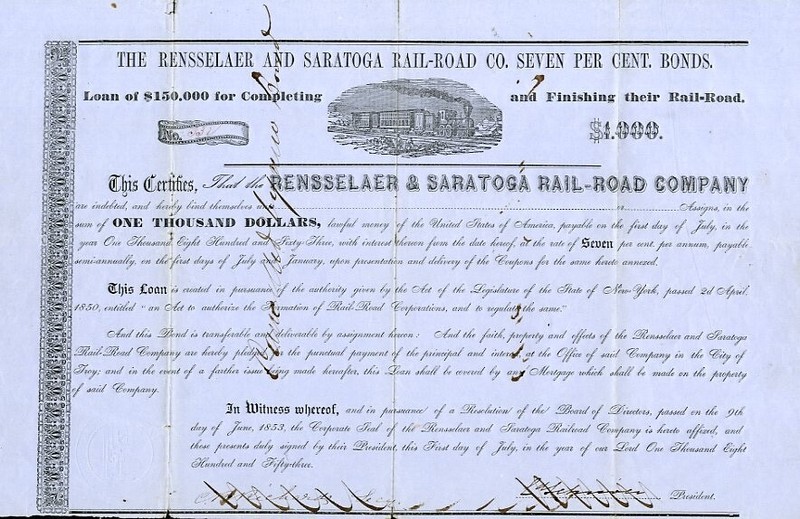 THE RENSSELAER AND SARATOGA RAIL-ROAD CO. SEVEN PER CENT. BONDS.
Loan of $150,000 for Completing and Finishing their Rail-Road.
No.
$1.000.
This Certifies, That the RENSSELAER & SARATOGA RAIL-ROAD COMPANY
are indebted, and hereby bind themselves or Assigns, in the
sum of ONE THOUSAND DOLLARS, lawful money of the United States of America, payable on the first day of July, in the
year One Thousand Eight Hundred and Sixty-Three, with interest thereon from the date hereof, at the rate of Seven per cent. per annum, payable
semi-annually, on the first days of July and January, upon presentation and delivery of the Coupons for the same hereto annexed.
This Loan is created in pursuance of the authority given by the Act of the Legislature of the State of New-York, passed 2d April,
1850, entitled "an Act to authorize the Formation of Rail-Road Corporations, and to regulate the same."
And this Bond is transferable and deliverable by assignment hereon: And the faith, property and effects of the Rensselaer and Saratoga
Rail-Road Company are hereby pledged for the punctual payment of the principal and interest, at the Office of said Company in the City of
Troy; and in the event of a farther issue being made hereafter, this Loan shall be covered by any Mortgage which shall be made on the property
of said Company.
In Witness whereof, and in pursuance of a Resolution of the Board of Directors, passed on the 9th
day of June, 1853, the Corporate Seal of the Rensselaer and Saratoga Railroad Company is hereto affixed, and
these presents duly signed by their President, this First day of July, in the year of our Lord One Thousand Eight
Hundred and Fifty-three.
President.